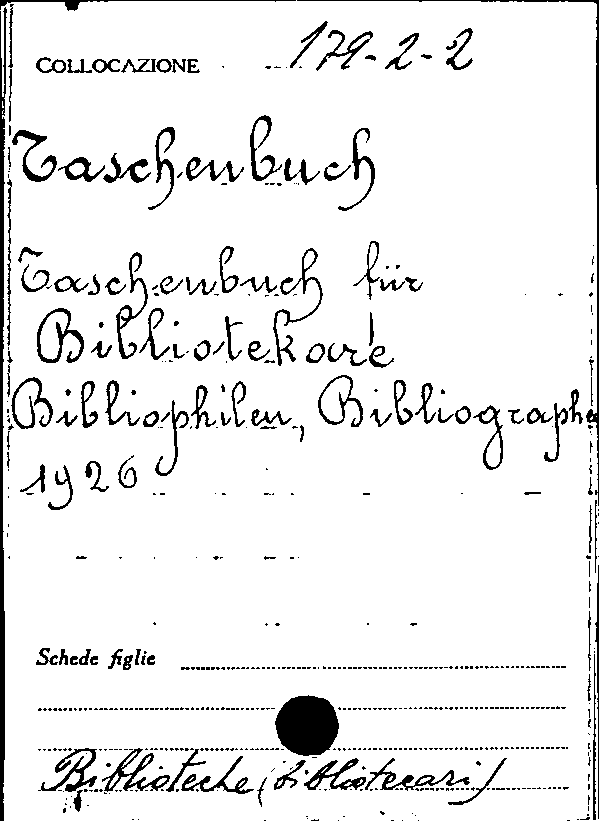 COLLOCAZIONE 179-2-2
Taschenbuch
Taschenbuch für
Bibliotekare
Bibliophilen, Bibliographe
1926
Schede figlie
Biblioteche (bibliotecari)